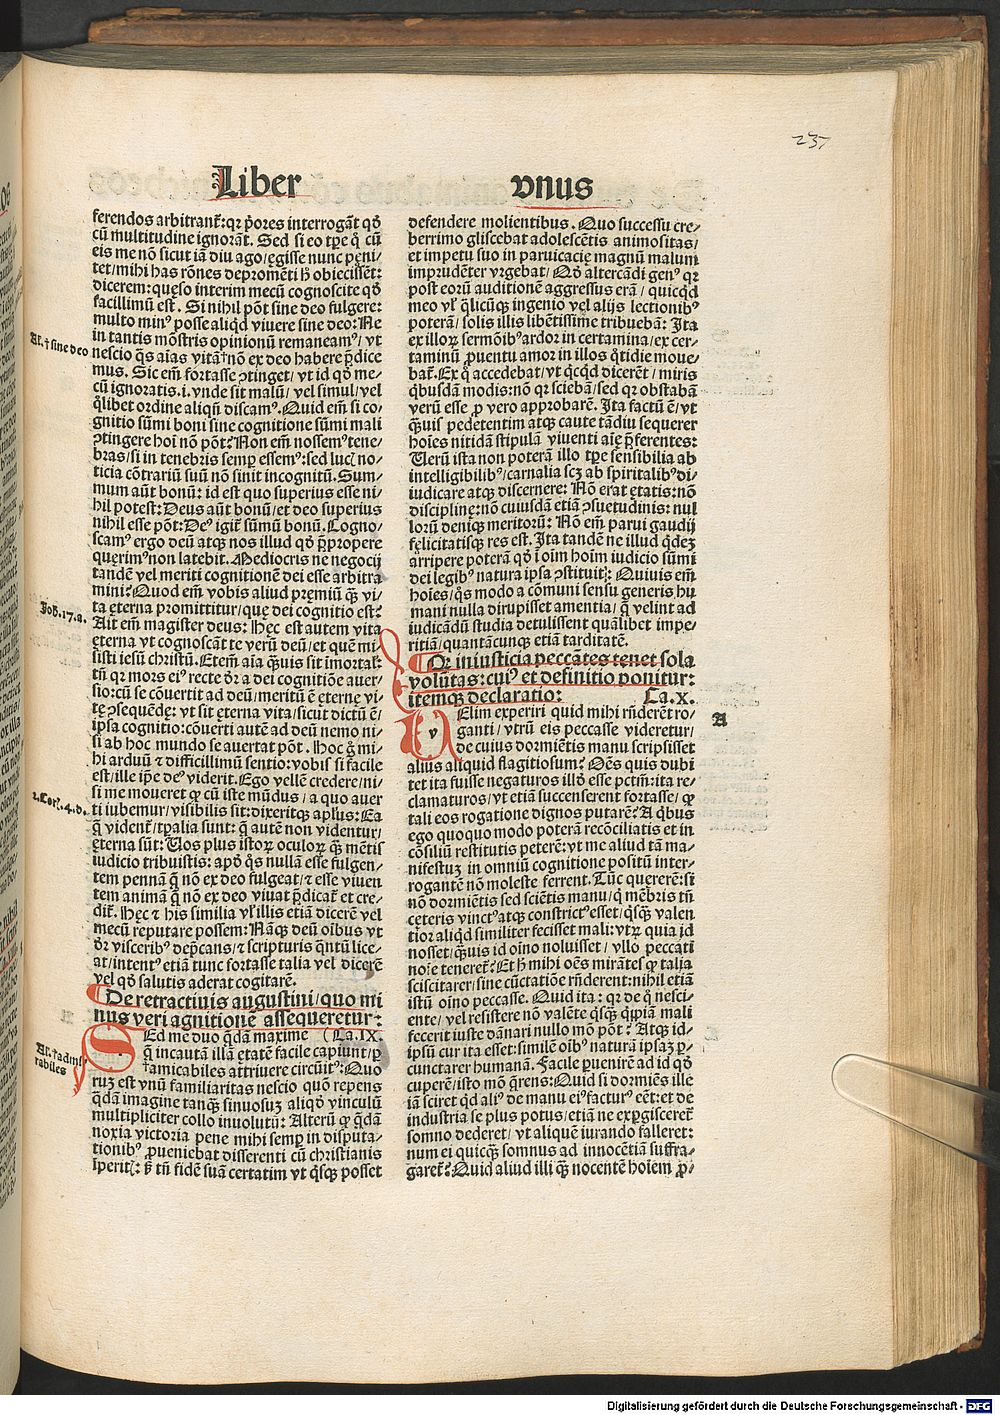 237
Liber vnus
ferendos arbitrant᷑: qꝛ p̄ores interrogāt qď
cū multitudine ignorāt. Sed si eo tp̄e q̄ cū
eis me nō sicut iā diu ago/ęgisse nunc pęni-
tet/mihi has rōnes depromēti ħ obiecissēt:
dicerem: quęso interim mecū cognoscite qď
facillimū est. Si nihil pōt sine deo fulgere:
multo minꝰ posse aliqd viuere sine deo: Ne
in tantis mōstris opinionū remaneamꝰ/ vt
Al.† sine deo
nescio q̄s aīas vitā†nō ex deo habere p̄dice
mus. Sic em̄ fortasse ꝯtinget/ vt id qď me-
cū ignoratis.i. vnde sit malū/ vel simul/vel
q̄libet ordine aliqn̄ discamꝰ. Quid em̄ si co-
gnitio sūmi boni sine cognitione sūmi mali
ꝯtingere hoī nō pōt? Non em̄ nossemꝰ tene-
bras/si in tenebris semꝑ essemꝰ: sed lucꝭ no-
ticia cōtrariū suū nō sinit incognitū. Sum-
mum aūt bonū: id est quo superius esse ni-
hil potest: Deus aūt bonū/ et deo superius
nihil esse pōt: Deꝰ igit᷑ sūmū bonū. Cogno-
scamꝰ ergo deū atqꝫ nos illud qď p̄propere
querimꝰ non latebit. Mediocris ne negocij
tandē vel meriti cognitionem dei esse arbitra
mini? Quod em̄ vobis aliud pręmiū qꝫ vi-
Joħ.17.a.
ta ęterna promittitur/que dei cognitio est?
Ait em̄ magister deus: Hęc est autem vita
ęterna vt cognoscāt te verū deū/ et quē mi-
sisti iesū christū. Etem̄ aīa q̄uis sit īmortal᷑:
tn̄ qꝛ mors eiꝰ recte dr̄ a dei cognitiōe auer-
sio: cū se cōuertit ad deū/ meritū ē eternę vi-
tę ꝯsequēdę: vt sit ęterna vita/sicut dictū ē/
ipsa cognitio: cōuerti autē ad deū nemo ni-
si ab hoc mundo se auertat pōt. Hoc g̊ mi-
hi arduū ⁊ difficillimū sentio: vobis si facile
est/ille ip̄e deꝰ viderit. Ego vellē credere/ni-
si me moueret ꝙ cū iste mūdus/ a quo auer
2.Corꝭ.4.d.
ti iubemur/visibilis sit: dixeritqꝫ apl̄us: Ea
q̄ vident᷑/ tp̄alia sunt: q̄ autē non videntur/
ęterna sūt: Uos plus istoꝝ oculoꝝ qꝫ mētis
iudicio tribuistis: apď qꝰ nullā esse fulgen-
tem pennā q̄ nō ex deo fulgeat/⁊ esse viuen
tem animā q̄ nō ex deo viuat p̄dicat᷑ et cre-
dit᷑. Hęc ⁊ his similia vl᷑ illis etiā dicerē vel
mecū reputare possem: Nāqꝫ deū oībus vt
dr̄ visceribꝰ dep̄cans/⁊ scripturis q̄ntū lice-
at/intentꝰ etiā tunc fortasse talia vel dicerē
vel qď salutis aderat cogitarē.
De retractiuis augustini/quo mi
nus veri agnitionē assequeretur:
(Ca.IX.
SEd me duo q̄dā maxime
Al.†admi
rabiles
q̄ incautā illā ętatē facile capiunt/ꝑ
†amicabiles attriuere circuitꝰ: Quo
ruꝫ est vnū familiaritas nescio quō repens
q̄dā imagine tanqꝫ sinuosuꝫ aliqď vinculū
multipliciter collo inuolutū: Alterū ꝙ q̄dā
noxia victoria pene mihi semꝑ in disputa-
tionibꝰ ꝓueniebat disserenti cū christianis
īperitꝭ: sꝫ tn̄ fidē suā certatim vt q̄sqꝫ posset
defendere molientibus. Quo successu cre-
berrimo gliscebat adolescētis animositas/
et impetu suo in paruicacię magnū malum
imprudēter vrgebat/ Qď altercādi genꝰ qꝛ
post eorū auditionē aggressus erā/ quicqd
meo vl᷑ q̄licūqꝫ ingenio vel alijs lectionibꝰ
poterā/ solis illis libētissime tribuebā: Ita
ex illoꝝ sermōibꝰ ardor in certamina/ex cer-
taminū ꝓuentu amor in illos q̄tidie moue-
bat᷑. Ex q̄ accedebat/vt qcqd dicerēt/ miris
qbusdā modis: nō qꝛ sciebā/sed qꝛ obstabā
verū esse ꝓ vero approbarē. Ita factū ē/vt
q̄uis pedetentim atqꝫ caute tādiu sequerer
hoīes nitidā stipulā viuenti aīę p̄ferentes:
Uerū ista non poterā illo tp̄e sensibilia ab
intelligibilibꝰ/carnalia scꝫ ab spiritalibꝰ di-
iudicare atqꝫ discernere: Nō erat ętatis: nō
disciplinę: nō cuiusdā etiā ꝯsuetudinis: nul
lorū deniqꝫ meritorū: Nō em̄ parui gaudij
fęlicitatisqꝫ res est. Ita tandē ne illud qdeꝫ
arripere poterā qď ī oīm hoīm iudicio sūmi
dei legibꝰ natura ipsa ꝯstituit: Quiuis em̄
hoīes/q̄s modo a cōmuni sensu generis hu
mani nulla dirupisset amentia/ q̄ velint ad
iudicādū studia detulissent quālibet impe-
ritiā/quantācunqꝫ etiā tarditatē.
Qꝛ iniusticia peccātes tenet sola
volūtas: cuiꝰ et definitio ponitur:
itemqꝫ declaratio: Ca.X.
VElim experiri quid mihi rn̄derēt ro-
A
ganti/ vtrū eis peccasse videretur/
de cuius dormiētis manu scripsisset
alius aliquid flagitiosum? Oēs quis dubi
tet ita fuisse negaturos illď esse pctm̄: ita re-
clamaturos/vt etiā succenserent fortasse/ ꝙ
tali eos rogatione dignos putarē? A qbus
ego quoquo modo poterā recōciliatis et in
cōsiliū restitutis peterē: vt me aliud tā ma-
nifestuꝫ in omniū cognitione positū inter-
rogantē nō moleste ferrent. Tūc quererē: si
nō dormiētis sed sciētis manu/q̄ mēbris tn̄
ceteris vinctꝰ atqꝫ constrictꝰ esset/ q̄sqꝫ valen
tior aliqd similiter fecisset mali: vtꝝ quia id
nosset/q̄uis id oīno noluisset/ vllo peccati
noīe teneret᷑? Et ħ mihi oēs mirātes ꝙ talia
sciscitarer/sine cūctatiōe rn̄derent: nihil etiā
istū oīno peccasse. Quid ita: qꝛ de q̄ nesci-
ente/ vel resistere nō valēte q̄sqꝫ qppiā mali
fecerit iuste dānari nullo mō pōt? Atqꝫ id-
ipsū cur ita esset: si milē oībꝰ naturā ipsaꝫ ꝑ-
cunctarer humanā. Facile ꝑuenirē ad id qď
cuperē/isto mō q̄rens: Quid si dormiēs ille
iā sciret qd aliꝰ de manu eiꝰ facturꝰ eēt: et de
industria se plus potus/etiā ne exꝑgisceret᷑
somno dederet/ vt aliquē iurando falleret:
num ei quicqꝫ somnus ad innocētiā suffra-
garet᷑? Quid aliud illi qꝫ nocentē hoīem ꝓ-
Digitalisierung gefördert durch die Deutsche Forschungsgemeinschaft - DFG